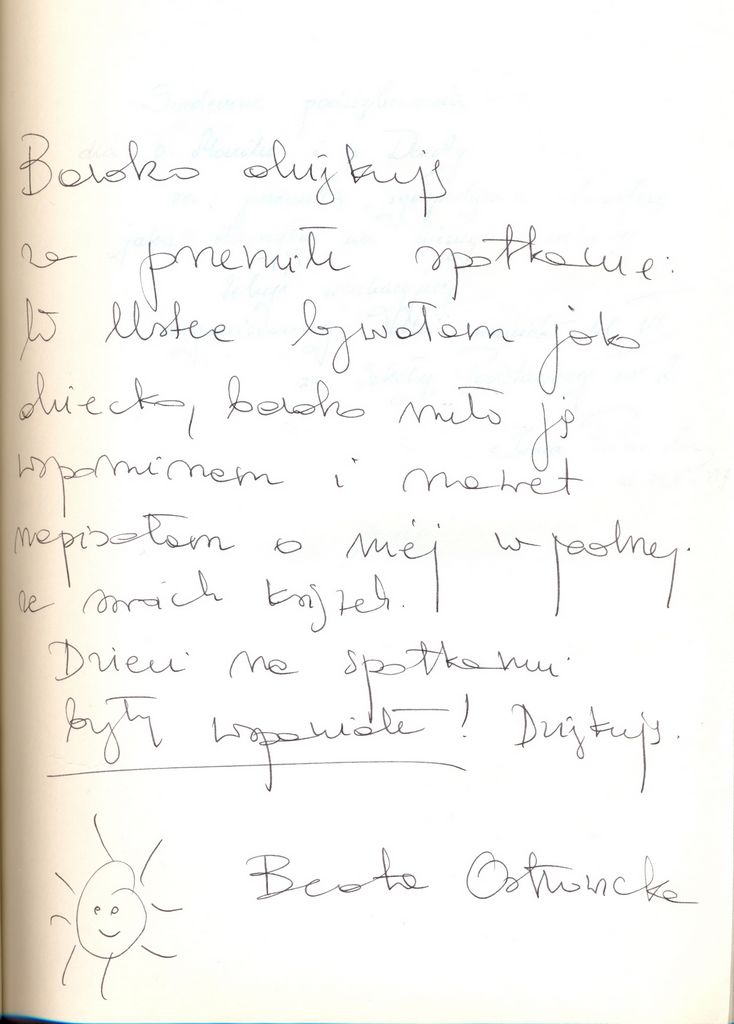 Bardzo dziękuję
za przemiłe spotkanie.
W Ustce bywałam jako
dziecko, bardzo miło ją
wspominam i nawet
napisałam o niej w jednej
ze swoich książek.
Dzieci na spotkaniu
były wspaniałe! Dziękuję.
Beata Ostrowicka